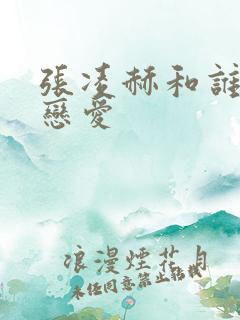 張凌赫和誰
戀愛
浪漫煙花月
未經同意禁止轉載